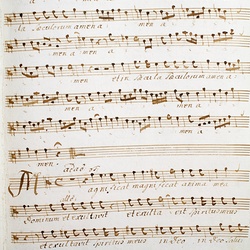 la saeculorum amen a
men a men a
men et in saecula saeculorum amen a
men a
men a
men.
Adagio
Magnificat magnificat anima mea
allo.
Dominum et exultavit et exulta vit spiritus meus
et exultavit spiritus meus in Deo in Deo salu